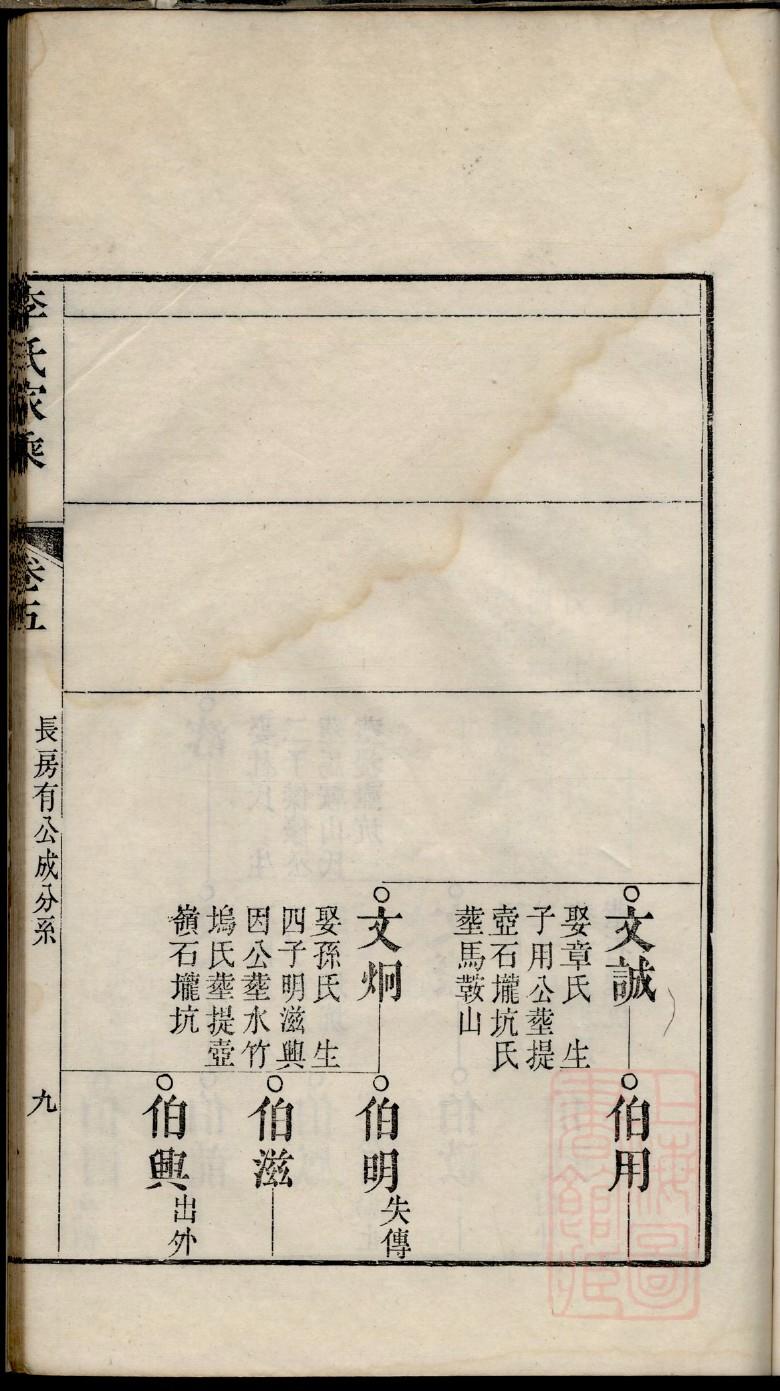 文誠
娶章氏 生
子用公塟提
壺石壠坑氏
塟馬鞍山
伯用
文炯
娶孫氏 生
四子明滋興
因公塟水竹
塢氏塟提壺
嶺石壠坑
伯明
失傳
伯滋
伯興
出外
李氏家乘
卷五
長房有公成分系
九
上海圖書館藏